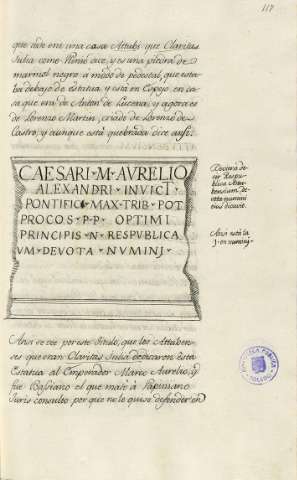 117
que aide en una casa Attubi que Claritas
Julia como Plinio dice, y es una piedra de
marmol negro a modo de pedestal que esta-
ba debajo de estatua y está en Espejo en ca-
sa que era de Anton de Lucena, y agora es
de Lorenzo Martin, criado de Lorenzo de
Castro, y aunque está quebrada dice ansi:
CAESARI · M · AVRELIO
ALEXANDRI · INVICT ·
PONTIFICI · MAX · TRIB · POT
PROCOS · P · P · OPTIMI
PRINCIPIS · N · RESPVBLICA
VM · DEVOTA · NVMINJ ·
Respu
blica
Ansi está la
J. en numinj.
Ansi se vee por este titulo, que los Attuben-
ses que eran Claritas Julia dedicaron esta
Estatua al Emperador Marco Aurelio, y
fue Basiano el que mató a Papiniano
Juris consulto por que no le quiso defender en
TOLEDO